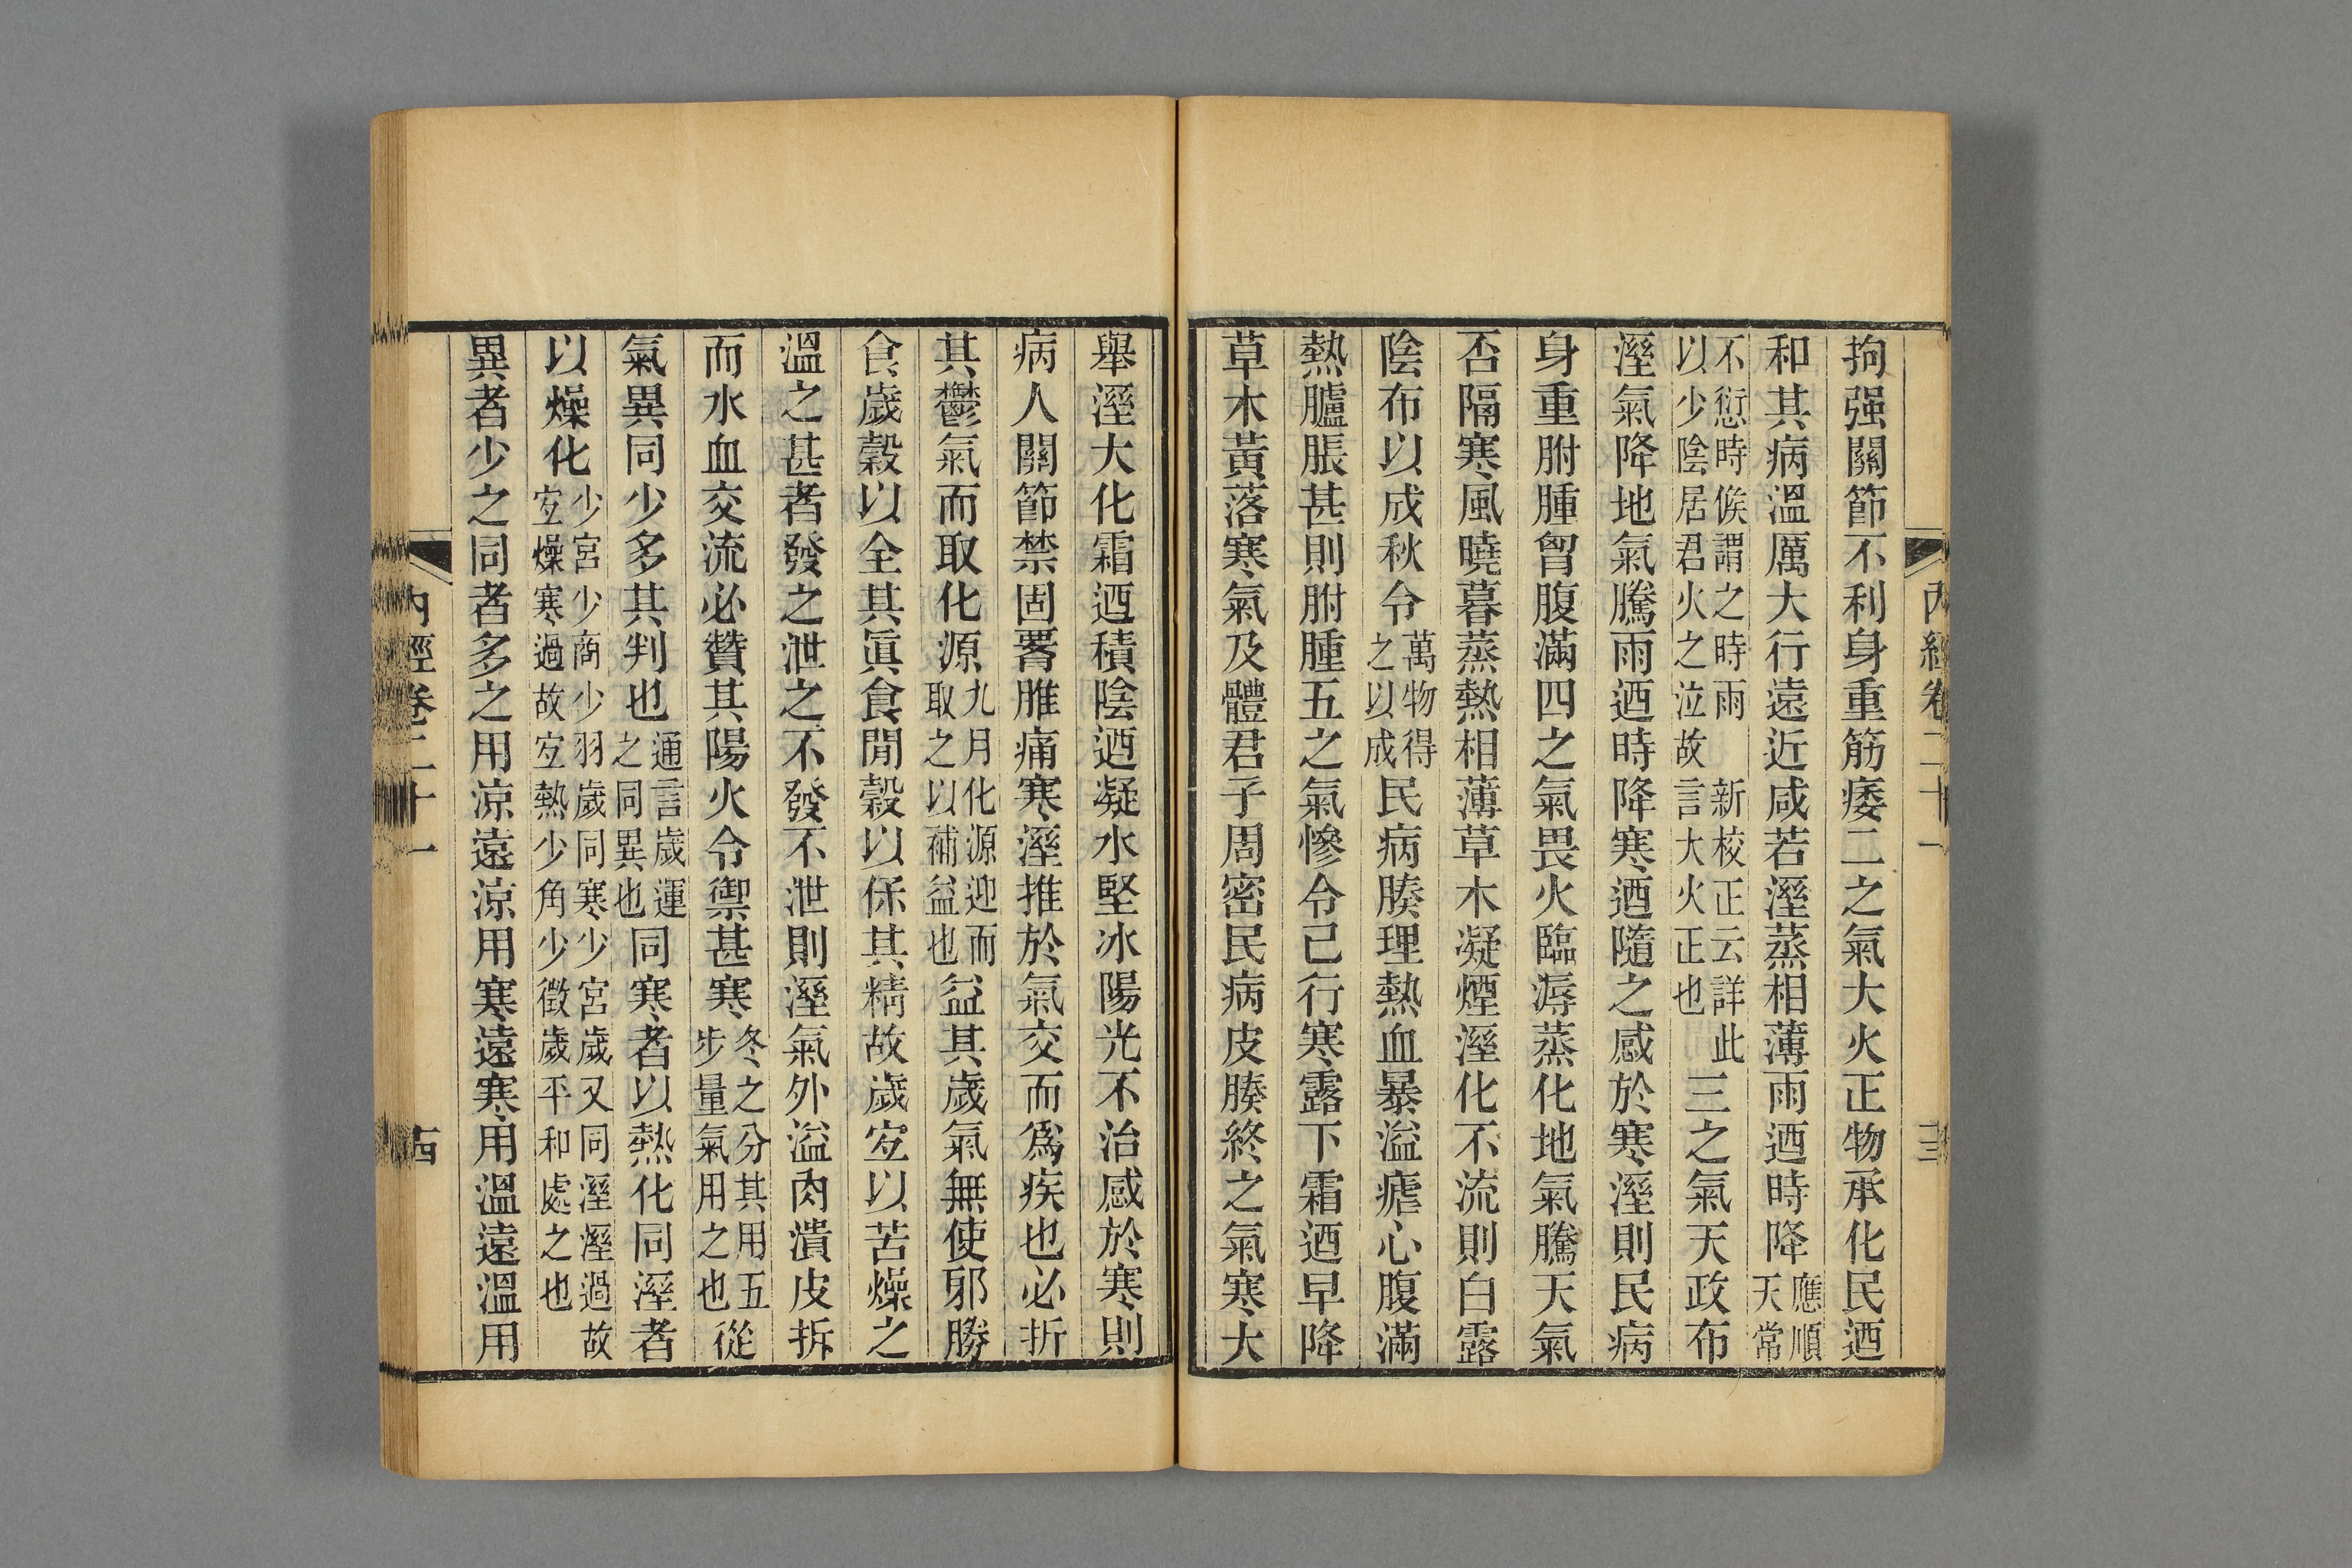 內經卷二十一 十三
拘强關節不利身重筋痿二之氣大火正物承化民迺
和其病溫厲大行遠近咸若溼蒸相薄雨迺時降應順天常
不愆時候謂之時雨 新校正云詳此以少陰居君火之泣故言大火正也三之氣天政布
溼氣降地氣騰雨迺時降寒迺隨之感於寒溼則民病
身重胕腫胷腹滿四之氣畏火臨溽蒸化地氣騰天氣
否隔寒風曉暮蒸熱相薄草木凝煙溼化不流則白露
陰布以成秋令萬物得之以成民病腠理熱血暴溢瘧心腹滿
熱臚脹甚則胕腫五之氣慘令已行寒露下霜迺早降
草木黃落寒氣及體君子周密民病皮腠終之氣寒大
舉溼大化霜迺積陰迺凝水堅冰陽光不治感於寒則
病人關節禁固署脽痛寒溼推於氣交而爲疾也必折
其鬱氣而取化源九月化源迎而取之以補益也益其歲氣無使邪勝
食歲穀以全其眞食閒穀以保其精故歲宐以苦燥之
溫之甚者發之泄之不發不泄則溼氣外溢肉潰皮拆
而水血交流必贊其陽火令禦甚寒冬之分其用五步量氣用之也從
氣異同少多其判也通言歲運之同異也同寒者以熱化同溼者
以燥化少宮少商少羽歲同寒少宮歲又同溼溼過故宐燥寒過故宐熱少角少徵歲平和處之也
異者少之同者多之用涼遠涼用寒遠寒用溫遠溫用
內經卷二十一 十四